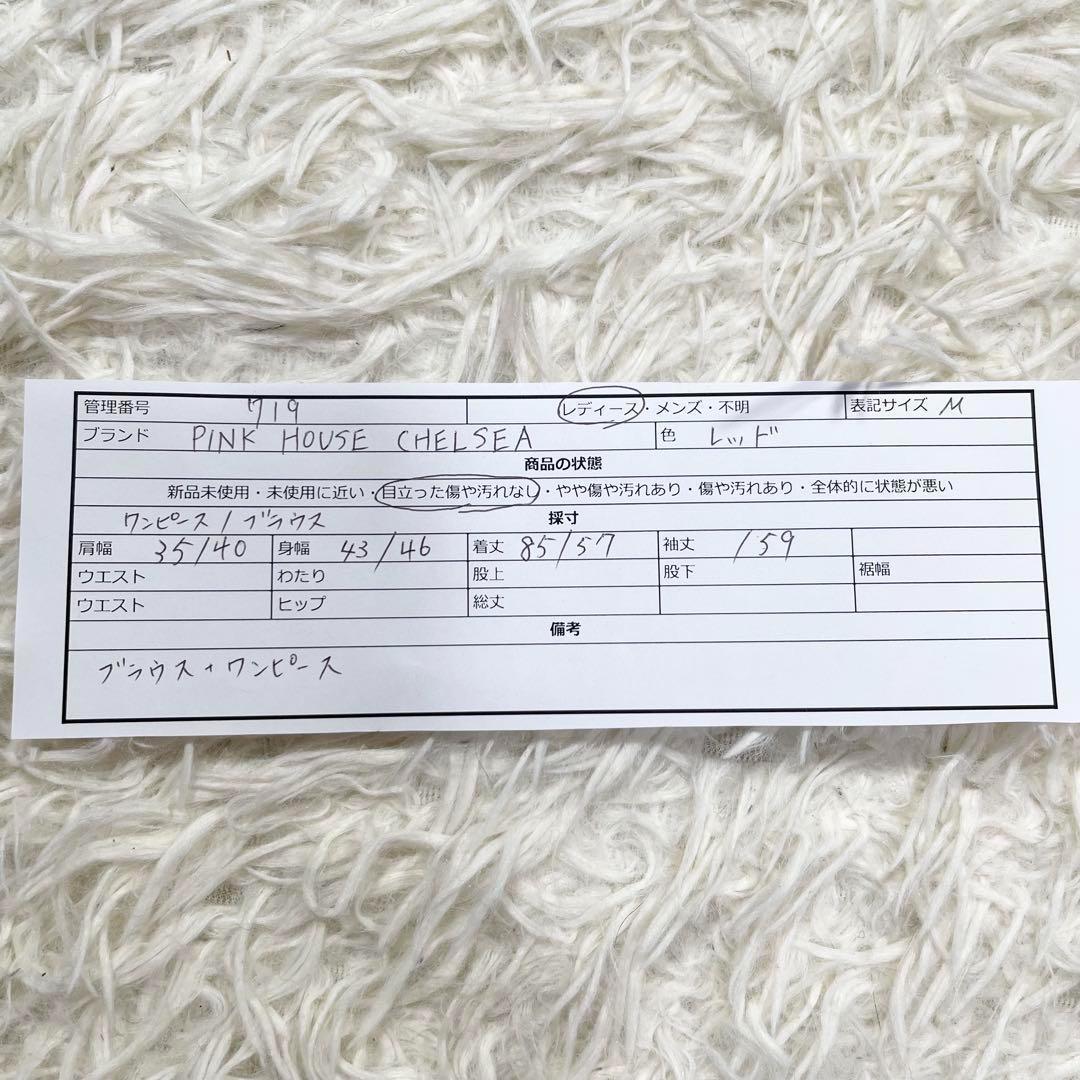 管理番号 719 レディース・メンズ・不明 表記サイズ M
ブランド PINK HOUSE CHELSEA 色 レッド
商品の状態
新品未使用・未使用に近い・目立った傷や汚れなし・やや傷や汚れあり・傷や汚れあり・全体的に状態が悪い
ワンピース / ブラウス 採寸
肩幅 35/40 身幅 43/46 着丈 85/57 袖丈 /59
ウエスト わたり 股上 股下 裾幅
ウエスト ヒップ 総丈
備考
ブラウス+ワンピース